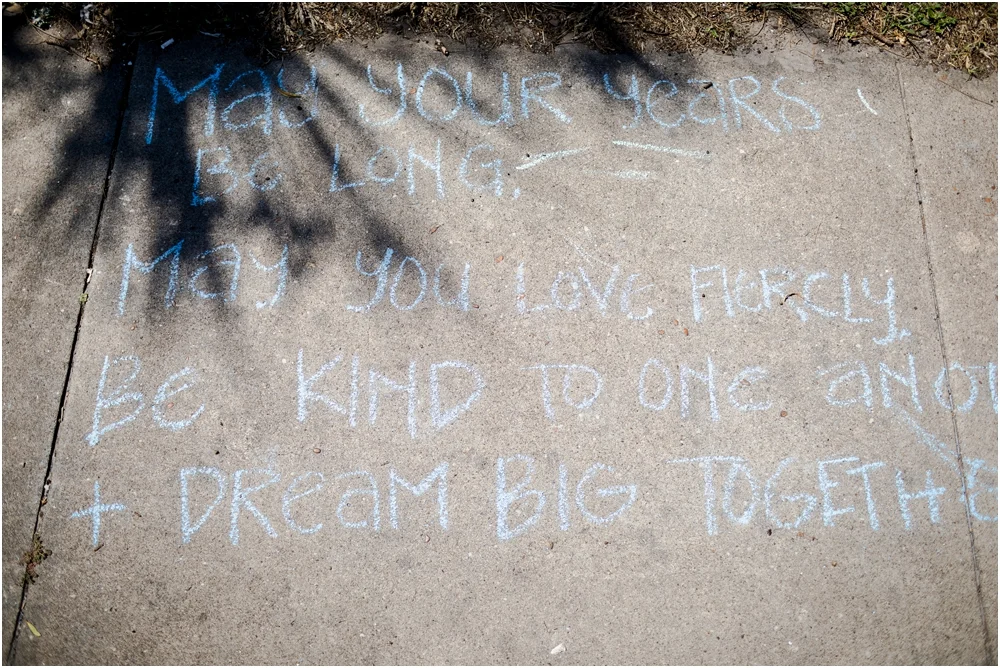 May YOUR years
Be LONG.
May you LOVE FIERCELY
Be KIND TO ONE aNO
+ DReaM BIG TOGETHE